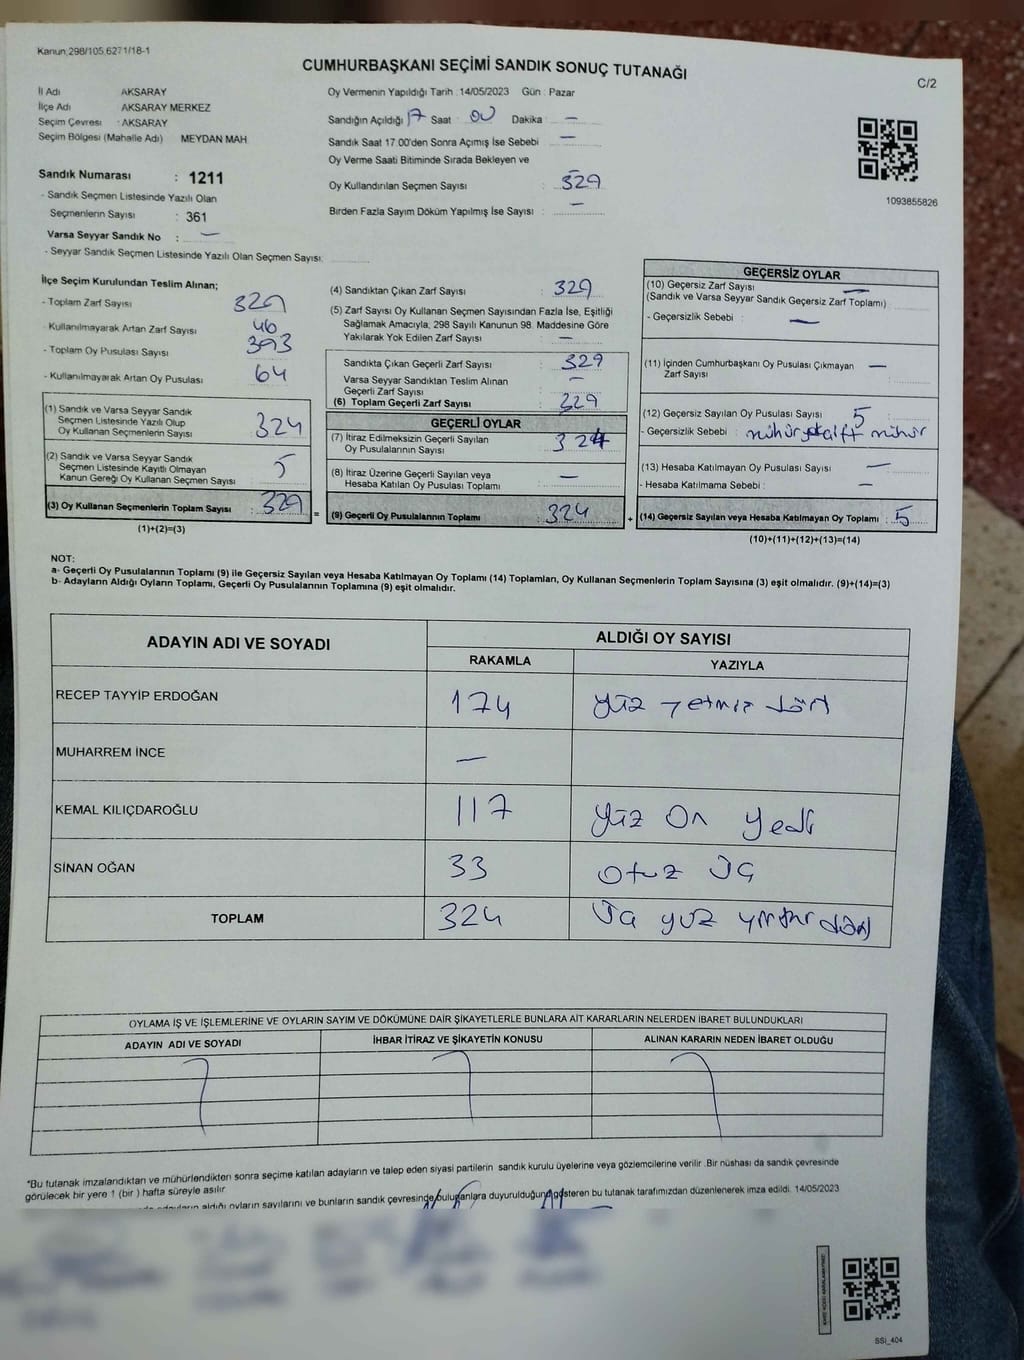 Kanun;298/105,6271/18-1
CUMHURBAŞKANI SEÇİMİ SANDIK SONUÇ TUTANAĞI
C/2
İl Adı AKSARAY
İlçe Adı AKSARAY MERKEZ
Seçim Çevresi : AKSARAY
Seçim Bölgesi (Mahalle Adı) MEYDAN MAH
Sandık Numarası : 1211
- Sandık Seçmen Listesinde Yazılı Olan
Seçmenlerin Sayısı : 361
Varsa Seyyar Sandık No : —
- Seyyar Sandık Seçmen Listesinde Yazılı Olan Seçmen Sayısı:
Oy Vermenin Yapıldığı Tarih :14/05/2023 Gün : Pazar
Sandığın Açıldığı 17 Saat : 00 Dakika : —
Sandık Saat 17.00'den Sonra Açımış İse Sebebi : —
Oy Verme Saati Bitiminde Sırada Bekleyen ve
Oy Kullandırılan Seçmen Sayısı : 329
Birden Fazla Sayım Döküm Yapılmış İse Sayısı : —
1093855826
İlçe Seçim Kurulundan Teslim Alınan;
- Toplam Zarf Sayısı
- Kullanılmayarak Artan Zarf Sayısı 46
- Toplam Oy Pusulası Sayısı 393
- Kullanılmayarak Artan Oy Pusulası 64
(1) Sandık ve Varsa Seyyar Sandık
Seçmen Listesinde Yazılı Olup
Oy Kullanan Seçmenlerin Sayısı : 324
(2) Sandık ve Varsa Seyyar Sandık
Seçmen Listesinde Kayıtlı Olmayan
Kanun Gereği Oy Kullanan Seçmen Sayısı : 5
(3) Oy Kullanan Seçmenlerin Toplam Sayısı : 329 =
(1)+(2)=(3)
(4) Sandıktan Çıkan Zarf Sayısı : 329
(5) Zarf Sayısı Oy Kullanan Seçmen Sayısından Fazla İse, Eşitliği
Sağlamak Amacıyla, 298 Sayılı Kanunun 98. Maddesine Göre
Yakılarak Yok Edilen Zarf Sayısı : —
Sandıkta Çıkan Geçerli Zarf Sayısı : 329
Varsa Seyyar Sandıktan Teslim Alınan
Geçerli Zarf Sayısı : —
(6) Toplam Geçerli Zarf Sayısı : 329
GEÇERLİ OYLAR
(7) İtiraz Edilmeksizin Geçerli Sayılan
Oy Pusulalarının Sayısı : 324
(8) İtiraz Üzerine Geçerli Sayılan veya
Hesaba Katılan Oy Pusulası Toplamı : —
(9) Geçerli Oy Pusulalarının Toplamı : 324 +
GEÇERSİZ OYLAR
(10) Geçersiz Zarf Sayısı —
(Sandık ve Varsa Seyyar Sandık Geçersiz Zarf Toplamı) :
- Geçersizlik Sebebi : —
(11) İçinden Cumhurbaşkanı Oy Pusulası Çıkmayan —
Zarf Sayısı :
(12) Geçersiz Sayılan Oy Pusulası Sayısı : 5
- Geçersizlik Sebebi : mühür çift mühür
(13) Hesaba Katılmayan Oy Pusulası Sayısı : —
- Hesaba Katılmama Sebebi : —
(14) Geçersiz Sayılan veya Hesaba Katılmayan Oy Toplamı : 5
(10)+(11)+(12)+(13)=(14)
NOT:
a- Geçerli Oy Pusulalarının Toplamı (9) ile Geçersiz Sayılan veya Hesaba Katılmayan Oy Toplamı (14) Toplamları, Oy Kullanan Seçmenlerin Toplam Sayısına (3) eşit olmalıdır. (9)+(14)=(3)
b- Adayların Aldığı Oyların Toplamı, Geçerli Oy Pusulalarının Toplamına (9) eşit olmalıdır.
ADAYIN ADI VE SOYADI ALDIĞI OY SAYISI
RAKAMLA YAZIYLA
RECEP TAYYİP ERDOĞAN 174 yüz yetmiş dört
MUHARREM İNCE —
KEMAL KILIÇDAROĞLU 117 yüz on yedi
SİNAN OĞAN 33 otuz üç
TOPLAM 324 Üç yüz yirmi dört
OYLAMA İŞ VE İŞLEMLERİNE VE OYLARIN SAYIM VE DÖKÜMÜNE DAİR ŞİKAYETLERLE BUNLARA AİT KARARLARIN NELERDEN İBARET BULUNDUKLARI
ADAYIN ADI VE SOYADI İHBAR İTİRAZ VE ŞİKAYETİN KONUSU ALINAN KARARIN NEDEN İBARET OLDUĞU
*Bu tutanak imzalandıktan ve mühürlendikten sonra seçime katılan adayların ve talep eden siyasi partilerin sandık kurulu üyelerine veya gözlemcilerine verilir .Bir nüshası da sandık çevresinde
görülecek bir yere 1 (bir ) hafta süreyle asılır
aldığı oyların sayılarını ve bunların sandık çevresinde bulunanlara duyurulduğunu gösteren bu tutanak tarafımızdan düzenlenerek imza edildi. 14/05/2023
SSI_404